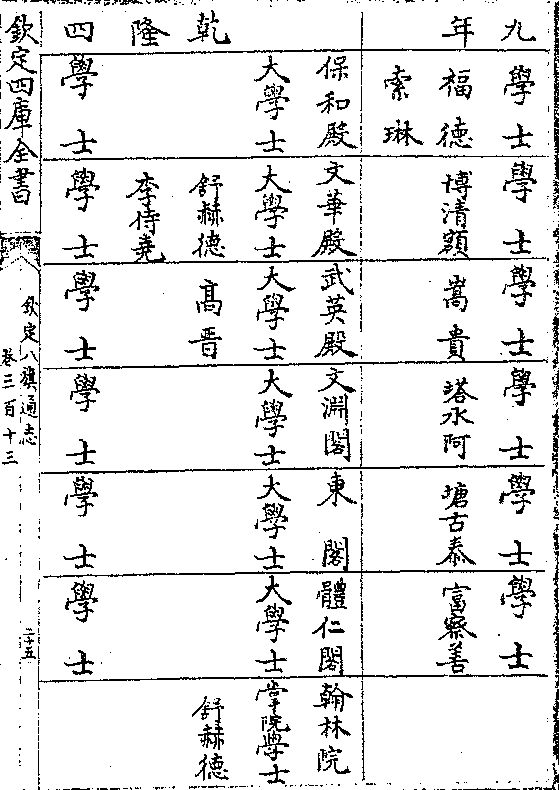 九 學士 學士 學士 學士 學士 學士
年 福德 博清額 嵩貴 塔永阿 塘古泰 富察善
索琳
保和殿 文華殿 武英殿 文淵閣 東閣 體仁閣 翰林院
大學士 大學士 大學士 大學士 大學士 大學士 掌院學士
乾 舒赫德 高晉 舒赫德
隆 李侍堯
四 學士 學士 學士 學士 學士 學士
欽定四庫全書
欽定八旗通志
卷三百十三
二十五